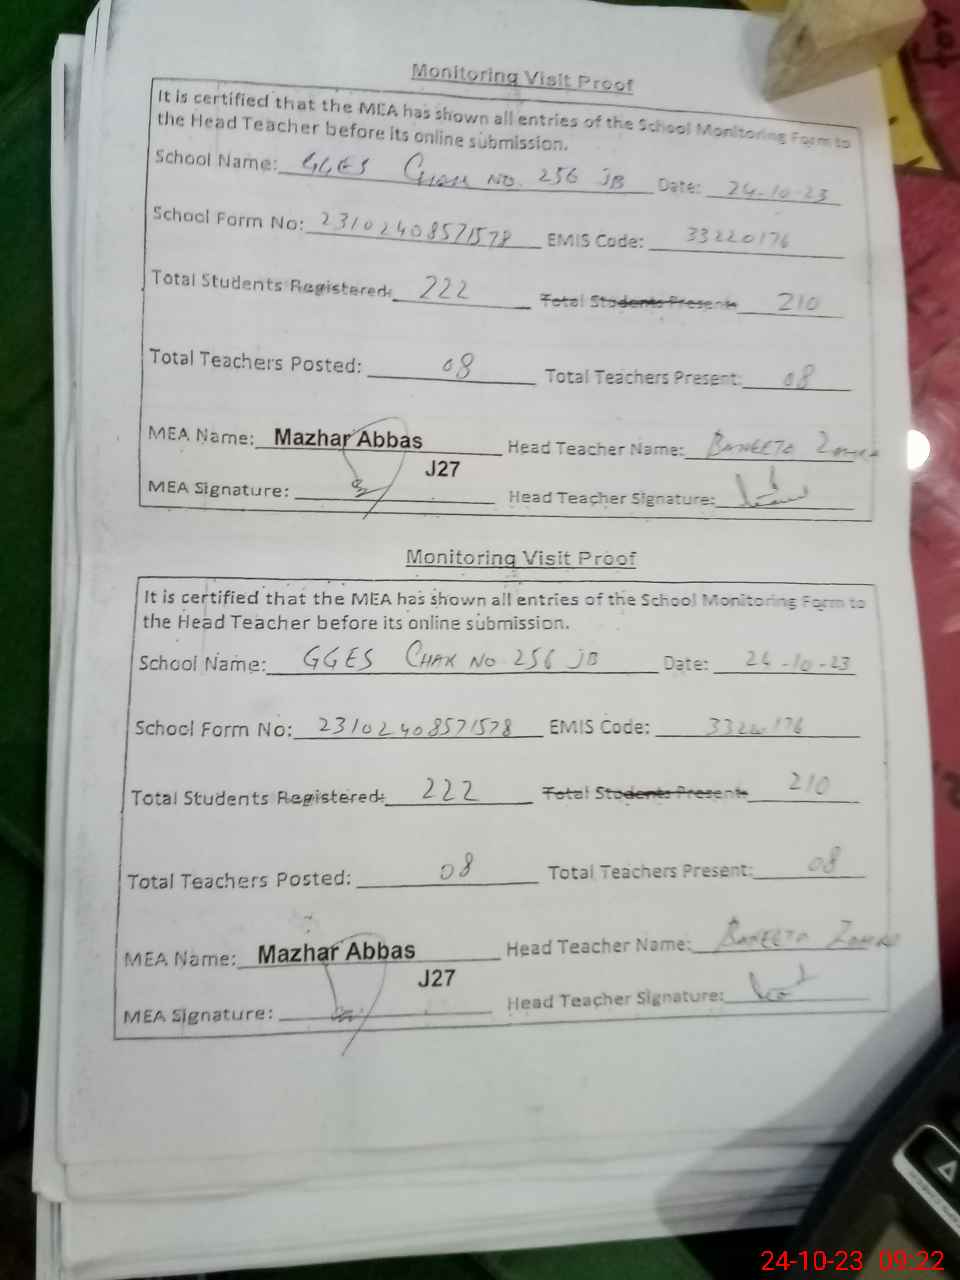 Monitoring Visit Proof
It is certified that the MEA has shown all entries of the School Monitoring Form to
the Head Teacher before its online submission.
School Name: GGES Chak No. 256 JB Date: 24-10-23
School Form No: 23102408571578 EMIS Code: 33220176
Total Students Registered: 222 Total Students Present: 210
Total Teachers Posted: 08 Total Teachers Present: 08
MEA Name: Mazhar Abbas Head Teacher Name:
J27
MEA Signature: Head Teacher Signature:
Monitoring Visit Proof
It is certified that the MEA has shown all entries of the School Monitoring Form to
the Head Teacher before its online submission.
School Name: GGES CHAK NO. 256 JB Date: 24-10-23
School Form No: 23102408571578 EMIS Code:
Total Students Registered: 222 Total Students Present: 210
Total Teachers Posted: 08 Total Teachers Present: 08
MEA Name: Mazhar Abbas Head Teacher Name:
J27
MEA Signature: Head Teacher Signature:
24-10-23 09:22